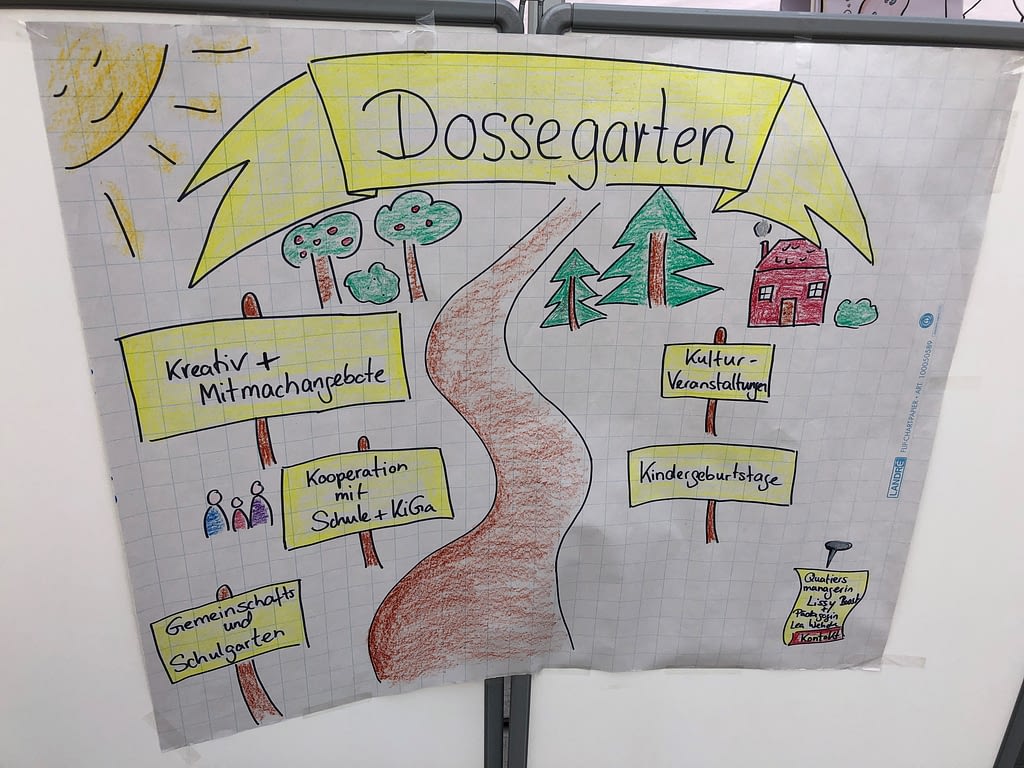 Dossegarten
Kreativ +
Mitmachangebote
Kultur-
Veranstaltungen
Kooperation
mit
Schule + KiGa
Kindergeburtstage
Gemeinschafts
und
Schulgarten
Quatiers
mangerin
Lissy
Pädagogin
Lea
Kontakt
LANDRÉ
FLIPCHARTPAPIER • ART. 100050589